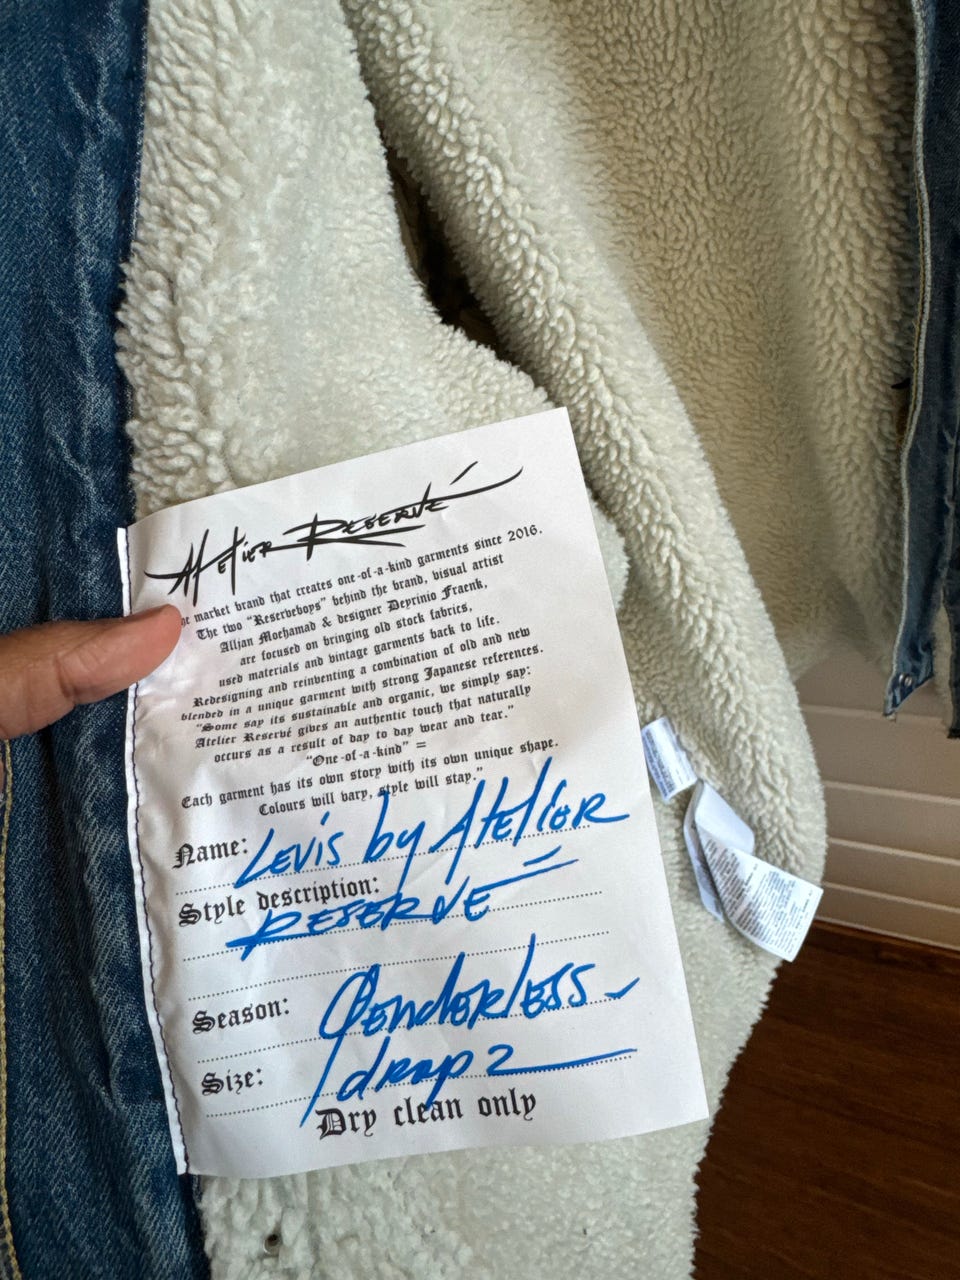 Atelier Reservé
he market brand that creates one-of-a-kind garments since 2016.
The two "Reserveboys" behind the brand, visual artist
Alljan Moehamad & designer Deyrinio Fraenk,
are focused on bringing old stock fabrics,
used materials and vintage garments back to life.
Redesigning and reinventing a combination of old and new
blended in a unique garment with strong Japanese references.
"Some say its sustainable and organic, we simply say:
Atelier Reservé gives an authentic touch that naturally
occurs as a result of day to day wear and tear."
"One-of-a-kind" =
Each garment has its own story with its own unique shape.
Colours will vary, style will stay."
Name: Levis by Atelier
Style description:
Reservé
Season: Genderless
Size: drop 2
Dry clean only